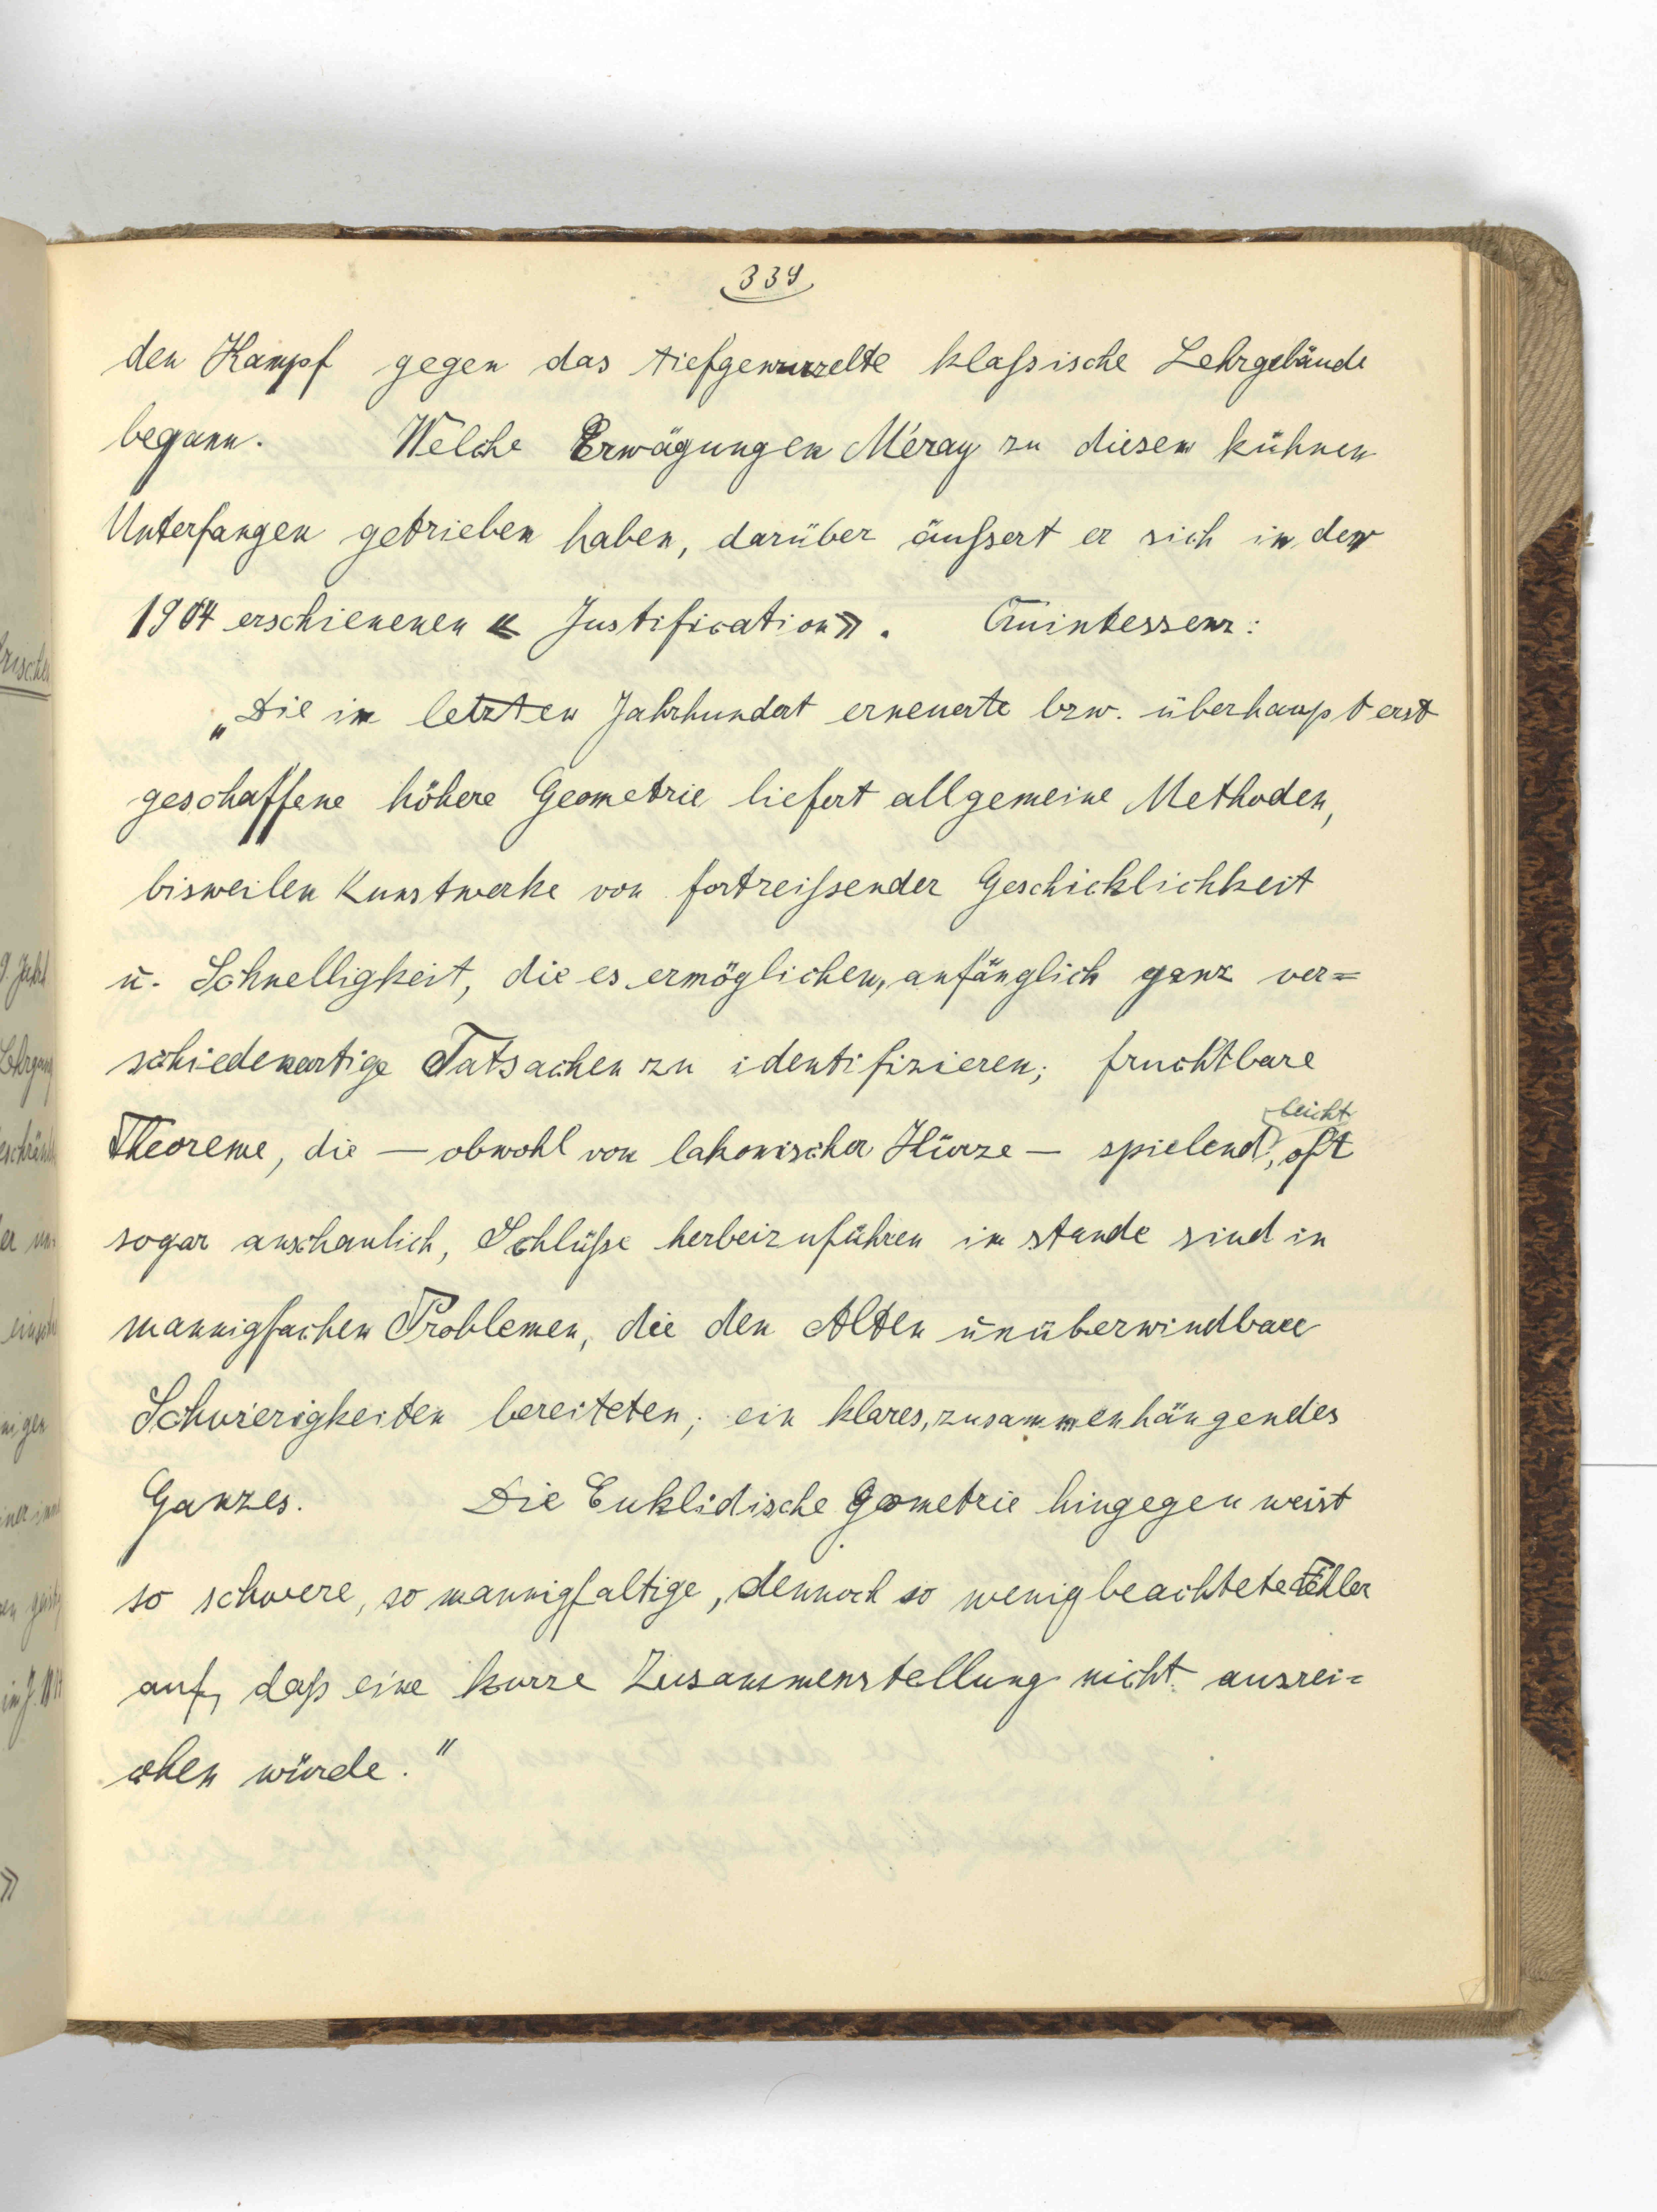 339
den Kampf gegen das tiefgewurzelte klaſsische Lehrgebäude
begann. Welche Erwägungen Méray zu diesem kühnen
Unterfangen getrieben haben, darüber äuſsert er sich in der
1904 erschienenen « Justification». Quintessenz:
„Die im letzten Jahrhundert erneuerte bzw. überhaupt erst
geschaffene höhere Geometrie liefert allgemeine Methoden,
bisweilen Kunstwerke von fortreiſsender Geschicklichkeit
u. Schnelligkeit, die es ermöglichen, anfänglich ganz ver=
schiedenartige Tatsachen zu identifizieren; fruchtbare
leicht
Theoreme, die — obwohl von lakonischer Kürze — spielend, oft
sogar anschaulich, Schlüſse herbeizuführen im stande sind in
mannigfachen Problemen, die den Alten unüberwindbare
Schwierigkeiten bereiteten; ein klares, zusammenhängendes
Ganzes. Die Euklidische Geometrie hingegen weist
so schwere, so mannigfaltige, dennoch so wenig beachtete Fehler
auf, daſs eine kurze Zusammenstellung nicht ausrei=
chen würde."